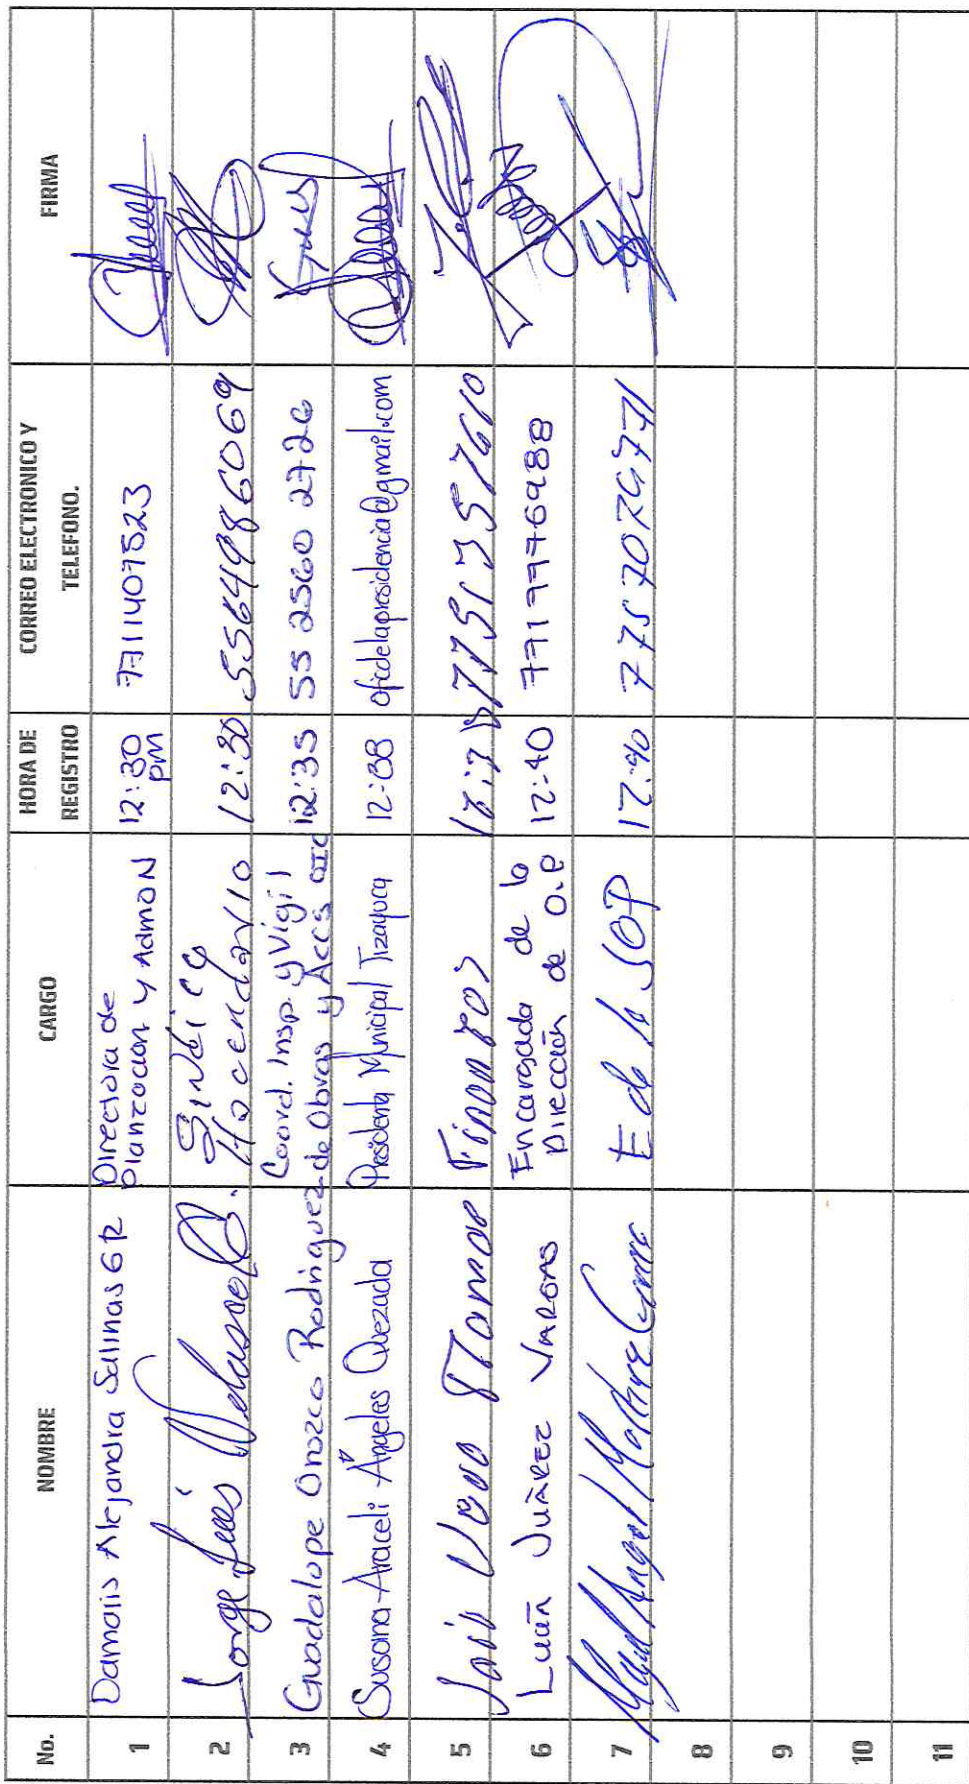 No. NOMBRE CARGO HORA DE REGISTRO CORREO ELECTRONICO Y TELEFONO. FIRMA
1 Damaris Alejandra Salinas GR Directora de Planeacion y Admon 12:30 pm 7711407523
2 Jorge Luis Velasco Síndico Hacendario 12:30 5564986069
3 Guadalupe Orozco Rodriguez Coord. Insp. y Vigil de Obras y Accs OIC 12:35 55 2560 2726
4 Susana Araceli Ángeles Quezada Presidenta Municipal Tizayuca 12:38 oficdelapresidencia@gmail.com
5 Finanzas
6 Lucía Juárez Vargas Encargada de la Dirección de O.P 12:40 7719776988
7 Angel 12:40
8
9
10
11